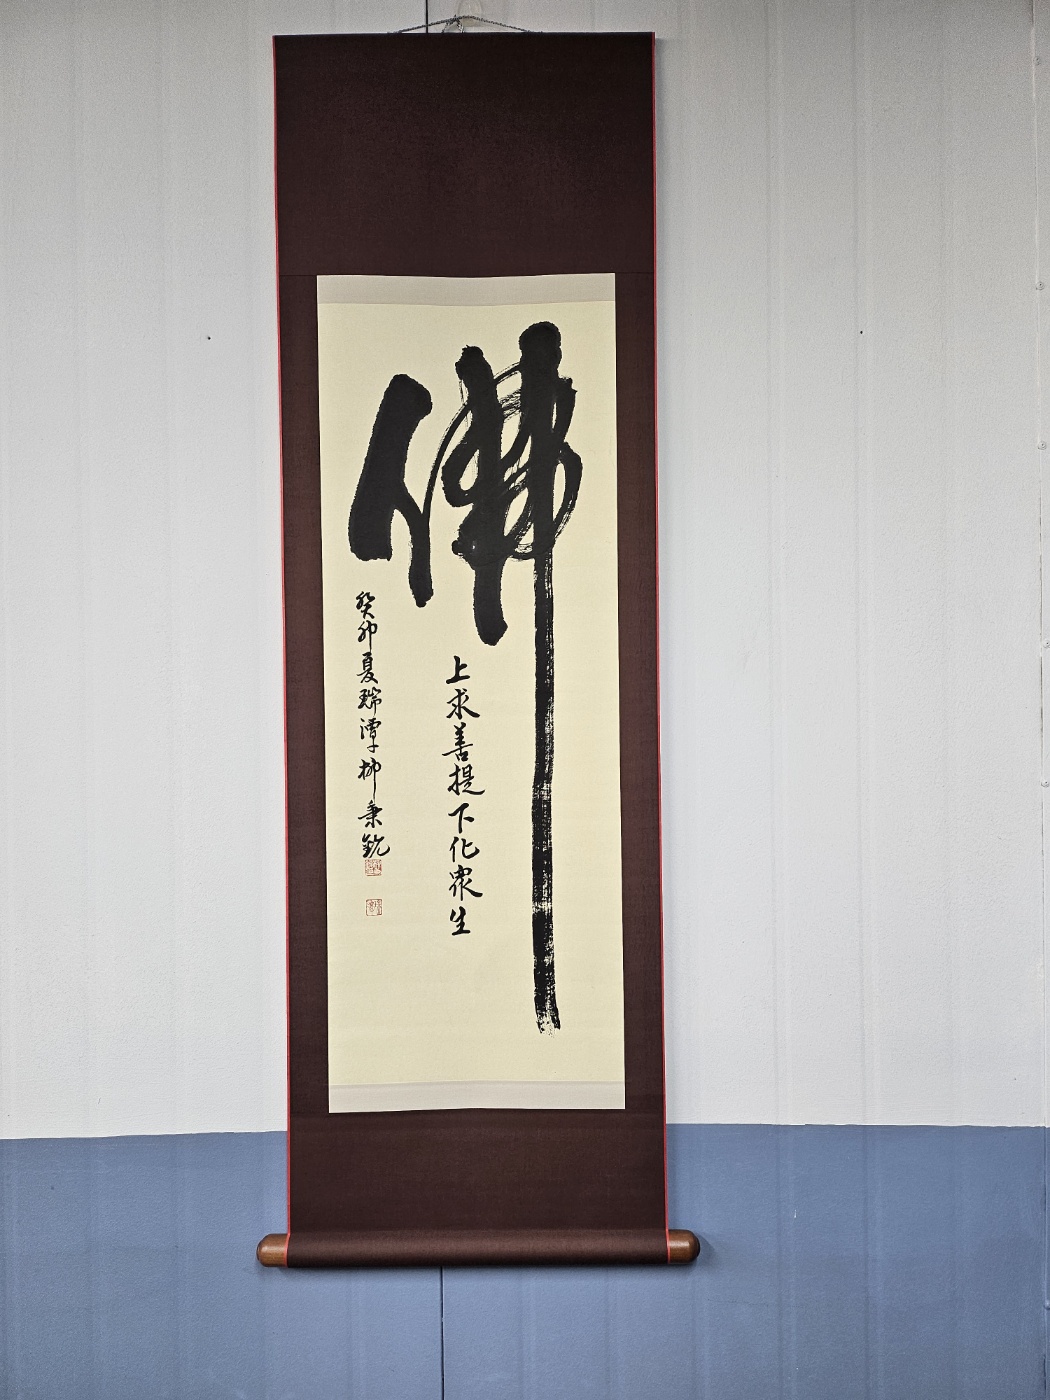 佛
上求菩提下化眾生
癸卯夏瑞潭柳秉